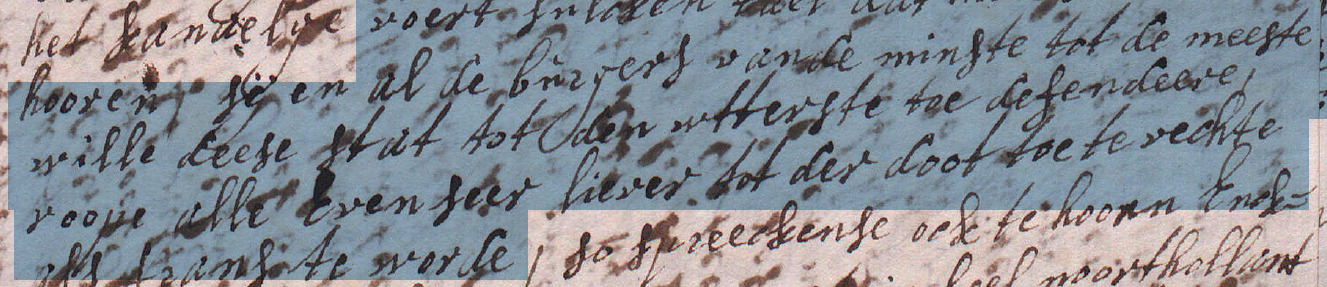 het kanaelye voert sulcken tael dat
hooren, sij en al de burgers vande minste tot de meeste
wille deese stat tot den utterste toe defendeere,
roope alle Even seer liever tot der doot toe te vechte
als frans te worde, so spreeckense ock te hoorn Enck=
heel noorthollant